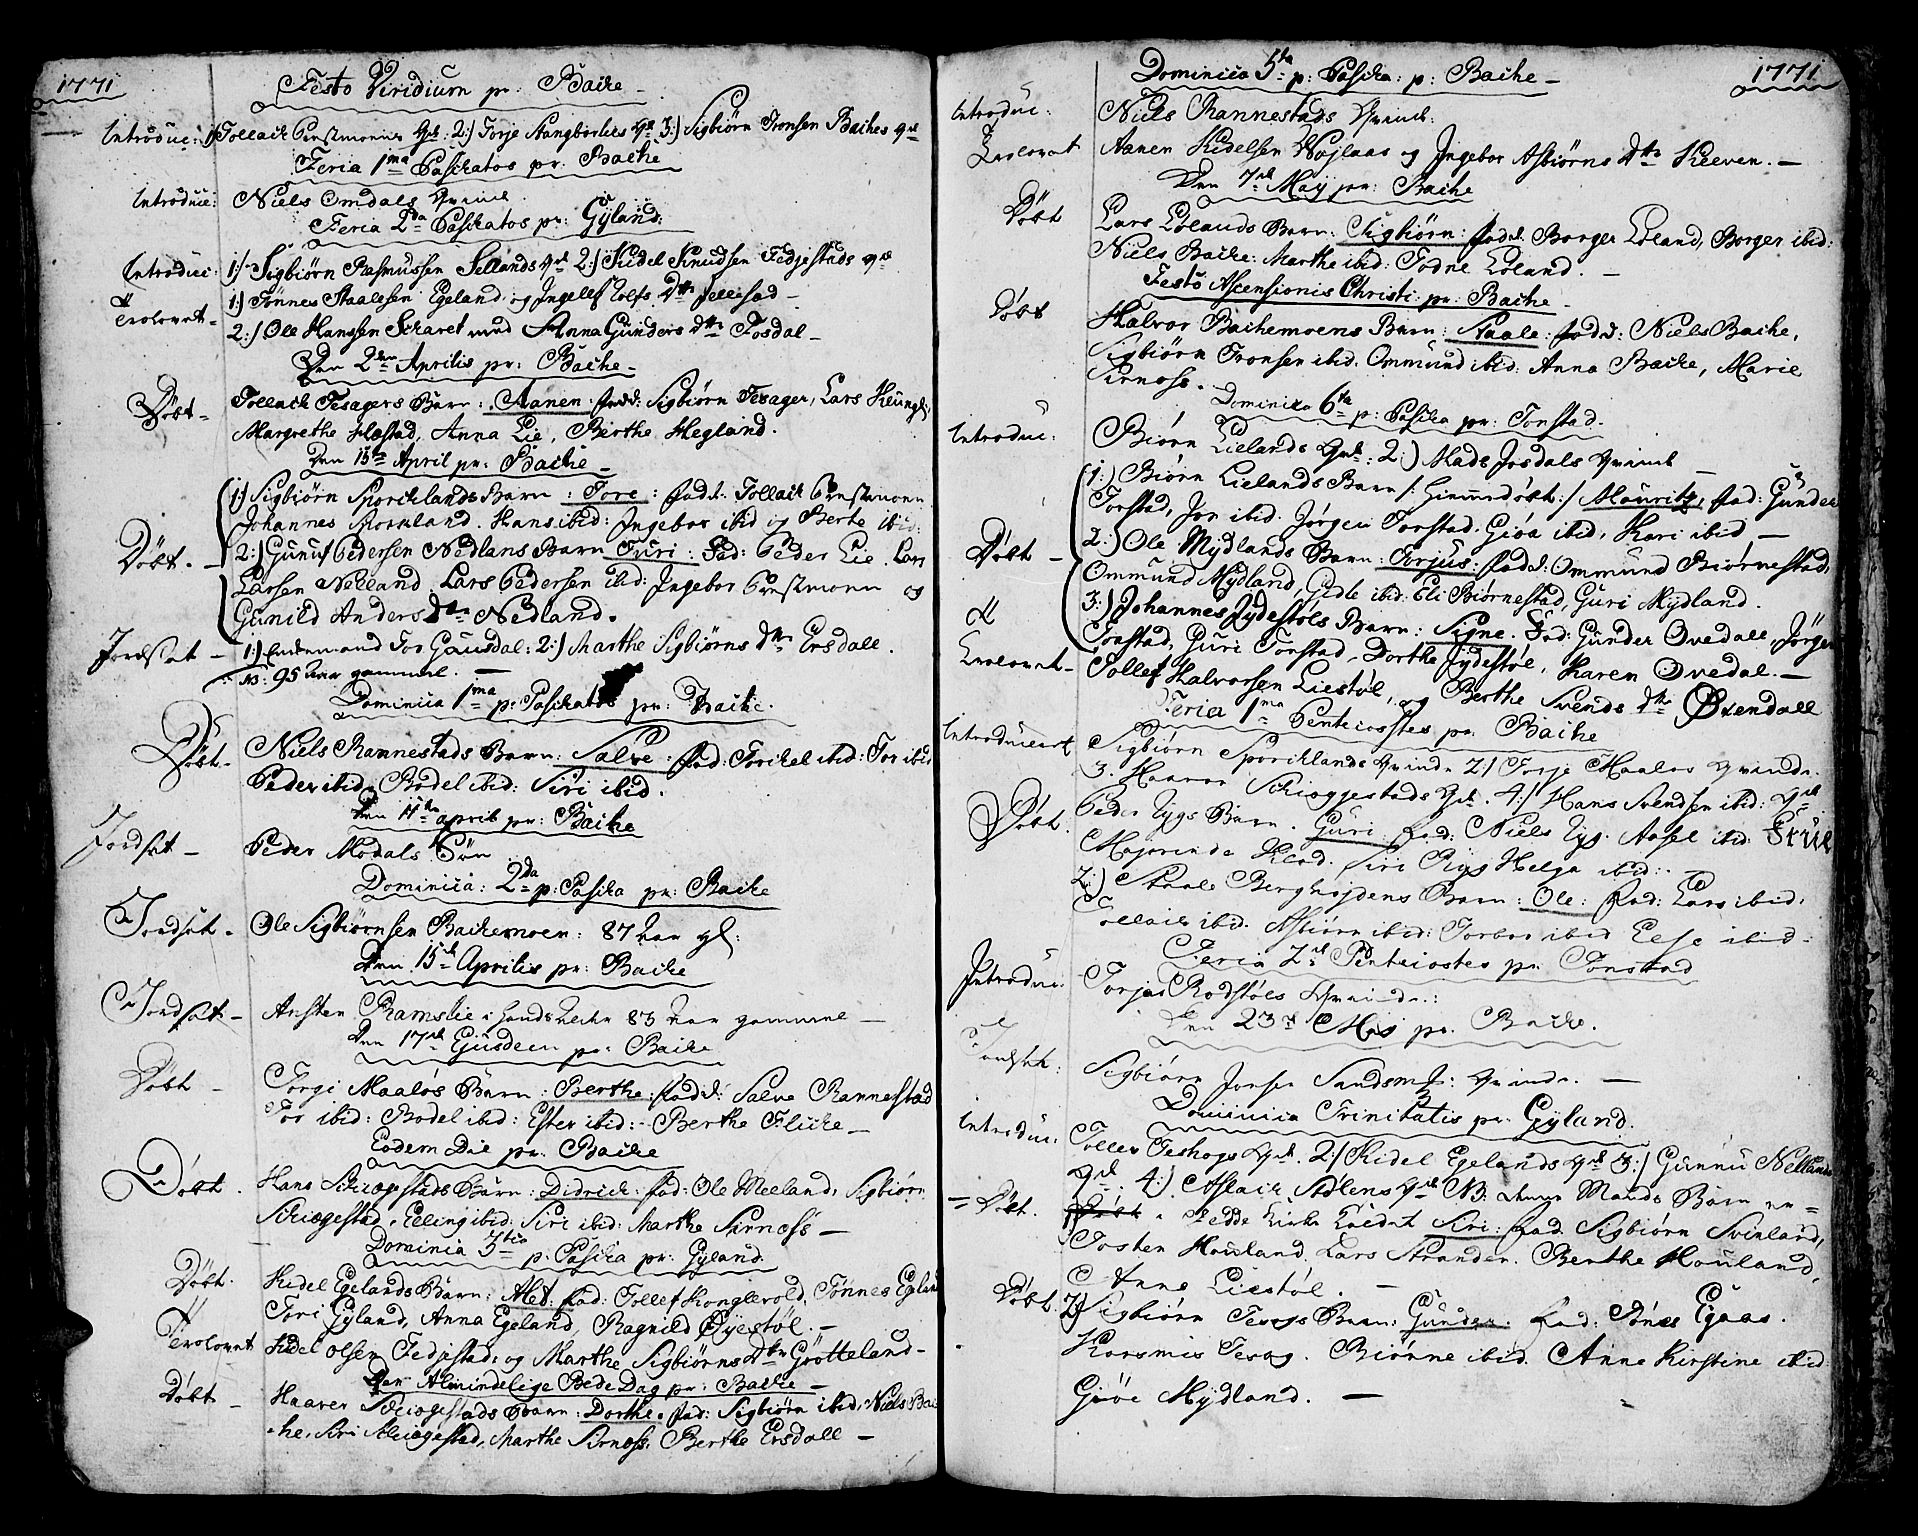 1771
Festo Viridium pr: Backe
Introduc: 1) Tollack Qd: 2:) Torje Stangborlies Qd 3:) Sigbiörn Tronsen Backes Qd
Feria 1ma Paschatos pr: Backe
Introduc: Niels Omdals Qvinde
Feria 2da Paschatos pr: Gyland
Introduc: 1:) Sigbiörn Rasmussen Sellands Qd 2:) Kidel Knudsen Fedjestads Qd
& 1:) Tönnes Staalesen Egeland og Ingelef Rolfs Dtr
Trolovet 2:) Ole Hanssen Scharet med Anna Gunders dtr Josdal
Den 2den Aprilis pr: Backe
Döbt Tollack Tesagers Barn: Aanen fadd: Sigbiörn Tesager, Lars
Margrethe Hæstad, Anna Lie, Berthe Hegland.
Den April pr: Backe
1:) Sigbiörn Sporcklands Barn: Tore: fadd: Tollack
Johannes Sporkland. Hans ibid: Ingebor ibid og Berte ibid
Döbt. 2:) Gunuf Pedersen Nedlans Barn Turi: Fad: Peder Lie. Lars
Larsen Nedland. Lars Pedersen ibid: Ingebor og
Gunild Anders Dtr Nedland.
Jordsat 1:) Tor Gausdal: 2:) Marthe Sigbiörns Dtr Ersdall.
NB: 95 Aar gammel.
Dominica 1ma p: Paschatos pr: Backe.
Döbt Niels Rannestads Barn: Salve: fad: Torckel ibid: Tor ibid
Peder ibid: Bodel ibid: Siri ibid.
Den 11te april pr: Backe
Jordsat Peder Modals Sön
Dominica: 2da p: Pascha pr: Backe
Jordsat Ole Sigbiörnsen Backemoen: 87 Aar gl:
Den 15de Aprilis pr: Backe
Jordsat Ansten Ramslie i Lunds 83 Aar gammel
Den 17de pr: Backe
Döbt Torgi Maaløs Barn: Berthe: fadd: Salve Rannestad
Tor ibid: Bodel ibid: Ester ibid: Berthe Flicke
Eodem Die pr: Backe
Döbt Hans Schiøgestads Barn: Didrich: fad: Ole Meeland, Sigbiörn
Schiøgestad, Elling ibid: Siri ibid: Marthe Sirnoss
Dominica 3tia p: Pascha pr: Gyland
Döbt. Kidel Egelands Barn: Alet: Fad: Tollef Konglevold, Tönnes Egland
Tori Gyland, Anna Egeland, Ragnild Öyestöl.
Trolovet Kidel Olsen Fedjestad: og Marthe Sigbiörns Dtr Grötteland
Den Almindelige Bede Dag pr: Backe
Döbt Haaver Schiøgestads Barn: Dorthe: fad: Sigbiörn ibid, Niels Bac
ke, Siri Schiøgestad, Marthe Sirnoss: Berthe Ersdall
1771
Dominica 5ta p: Pascha: p: Backe
Introduc: Niels Rannestads Qvinde:
Trolovet Aanen Kidelsen og Ingebor Asbiörns Dtr Kleeven.
Den 7de Maij pr: Backe
Döbt Lars Löelands Barn: Sigbiörn: fadd: Borger Löland, Borger ibid:
Niels Backe: Marthe ibid: Todne Löland.
Festo Ascensionis Christi: pr: Backe
Döbt Halvor Backemoens Barn: Staale: fadd: Niels Backe,
Sigbiörn Tronsen ibid: Ommund ibid: Anna Backe, Marie
Sirnoss.
Dominica 6ta p: Pascha pr: Tonstad.
Introduc: Biörn Lielands Qvd: 2:) Mads Josdals Qvinde
1:) Biörn Lielands Barn /: Hiemmedöbt:/ Mouritz, fad: Gunder
Tonstad, Jon ibid. Jörgen Tonstad. Giöa ibid, Kari ibid
Döbt 2:) Ole Mydlands Barn: Torjus: fadd: Ommund Biörnestad,
Ommund Mydland, Gidle ibid: Eli Biörnestad, Guri Mydland.
3:) Johannes Jydestöls Barn: Signe. Fad: Gunder Ovedall, Jörgen
& Tonstad, Guri Tonstad, Dorthe Jydestöl, Karen Ovedal.
Trolovet Tollef Halvorsen Liestöl, og Berthe Svends dtr Öxendall
Feria 1ma Pentecostes pr: Backe
Introduceret Sigbiörn Sporcklands Qvinde 2:) Torje Maalös Qvinde.
3. Haavor Schiøggestads Qd. 4:) Hans Svendsen ibid: Qd
Döbt Peder Rygs Barn. Guri fad: Niels Ryg. Axsel ibid.
Siri Rygs Helga ibid:
2:) Staale Berghöjdens Barn: Ole: fad: Lars ibid:
Tollack ibid. Asbiörn ibid: Torbor ibid Else ibid.
Feria 2de Pentecostes pr: Tonstad
Introduc: Torjus Rodstöls Qvinde:
Den 23de Maj pr: Backe.
Jordsat: Sigbiörn Jonsen Qvinde.
Dominica Trinitatis pr: Gyland.
Introduc: Tollev Teshays Qd. 2:) Kidel Egelands Qd 3:) Gunnu Nellands
Qd. 4:) Aslack Qd NB. Mands Barn
Döbt. 1) Kirke Siri: fad. Sigbiörn Svinland,
Tosten Houland. Lars Stranden. Berthe Houland,
Anne Liestöl.
Döbt. 2) Sigbiörn Barn: Gunder. Fad: Tönes Egaas.
Biörne ibid. Anne Kirstine ibid
Giöe Mydland.